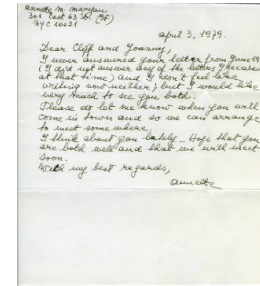 Annette M. Maryan
301 East 63 St. (9F)
NYC 10021
April 3, 1979.
Dear Cliff and Joanny,
I never answered your letter from June 19
(I did not answer any of the letters I received
at that time) and I don't feel like
writing now neither; but I would like
very much to see you both.
Please do let me know when you will
come in town and so we can arrange
to meet somewhere.
I think about you lately. Hope that you
are both well and that we will meet
soon.
With my best regards,
Annette